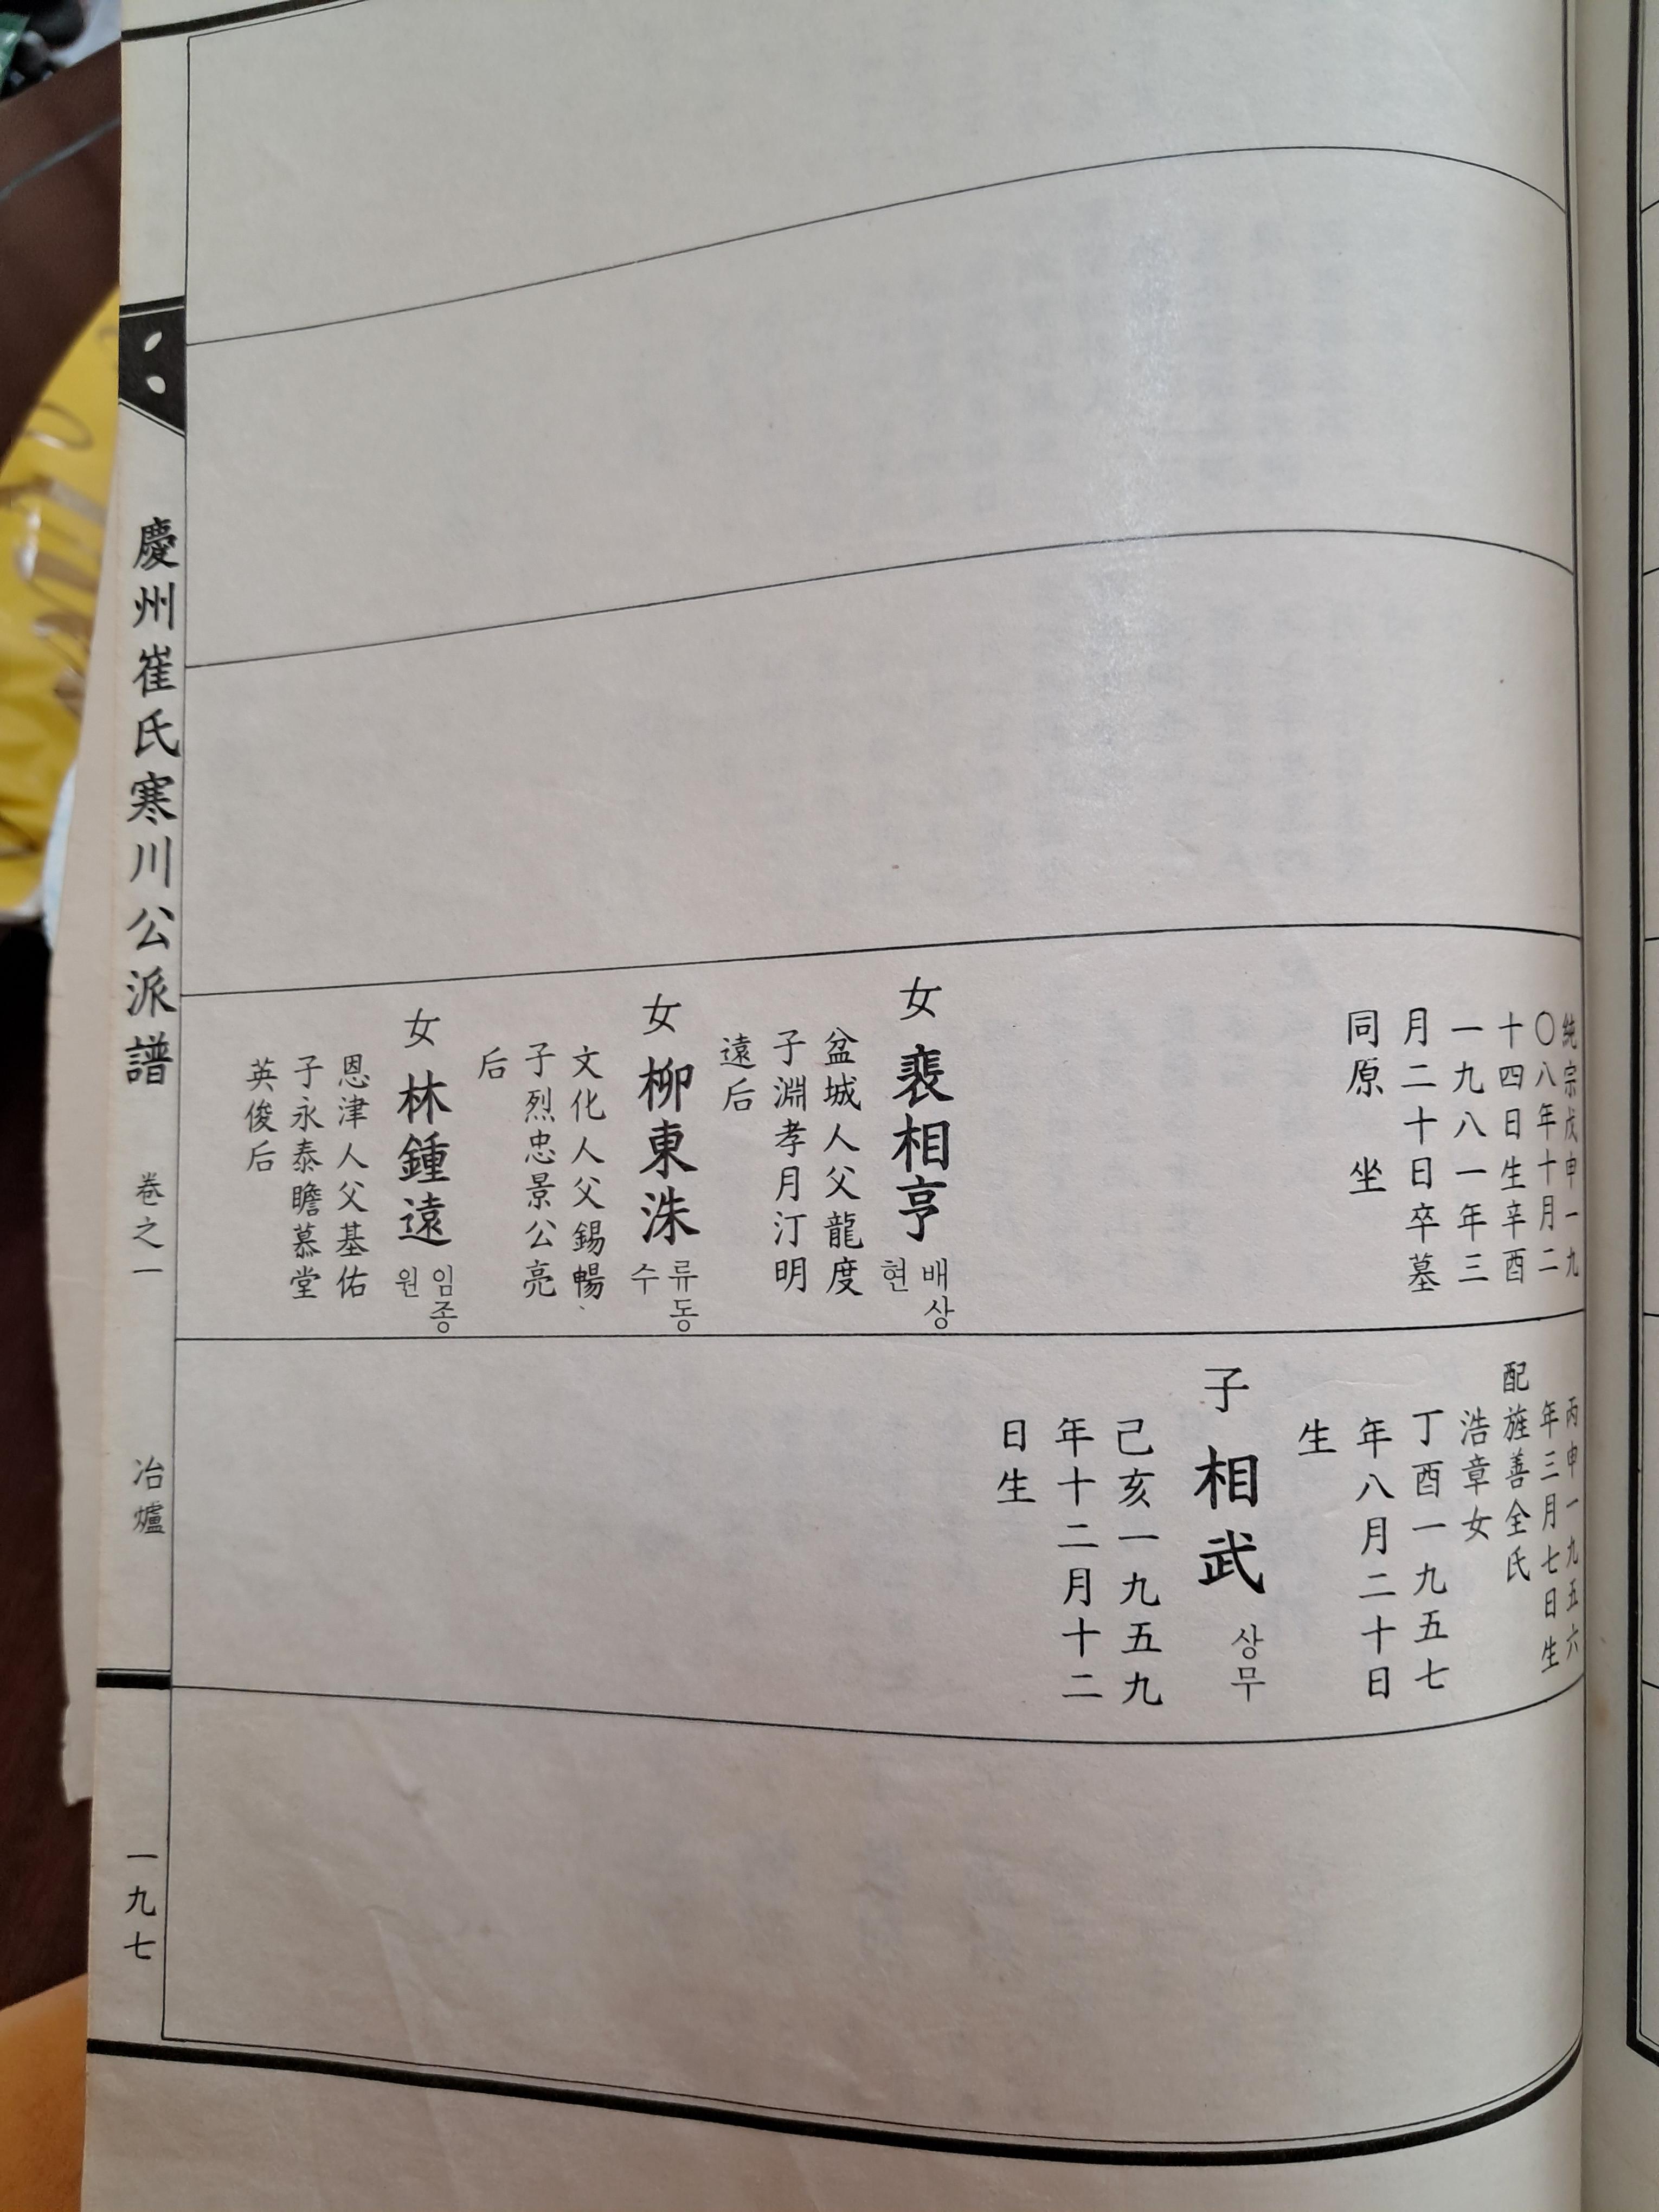 純宗戊申一九
〇八年十月二
十四日生辛酉
一九八一年三
月二十日卒墓
同原 坐
女 裵相亨 배상현
盆城人父龍度
子淵孝月汀明
遠后
女 柳東洙 류동수
文化人父錫暢
子烈忠景公亮
后
女 林鍾遠 임종원
恩津人父基佑
子永泰瞻慕堂
英俊后
丙申一九五六
年三月七日生
配旌善全氏
浩章女
丁酉一九五七
年八月二十日
生
子 相武 상무
己亥一九五九
年十二月十二
日生
慶州崔氏寒川公派譜 卷之一 冶爐 一九七